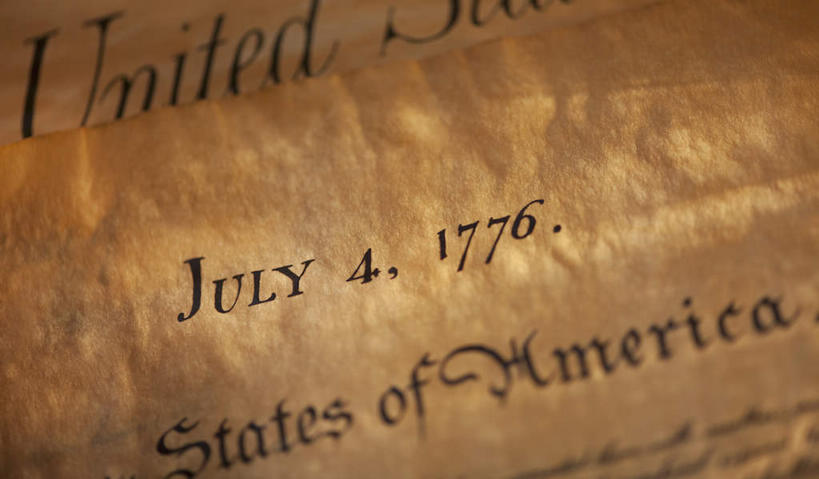 United States
July 4, 1776.
States of America